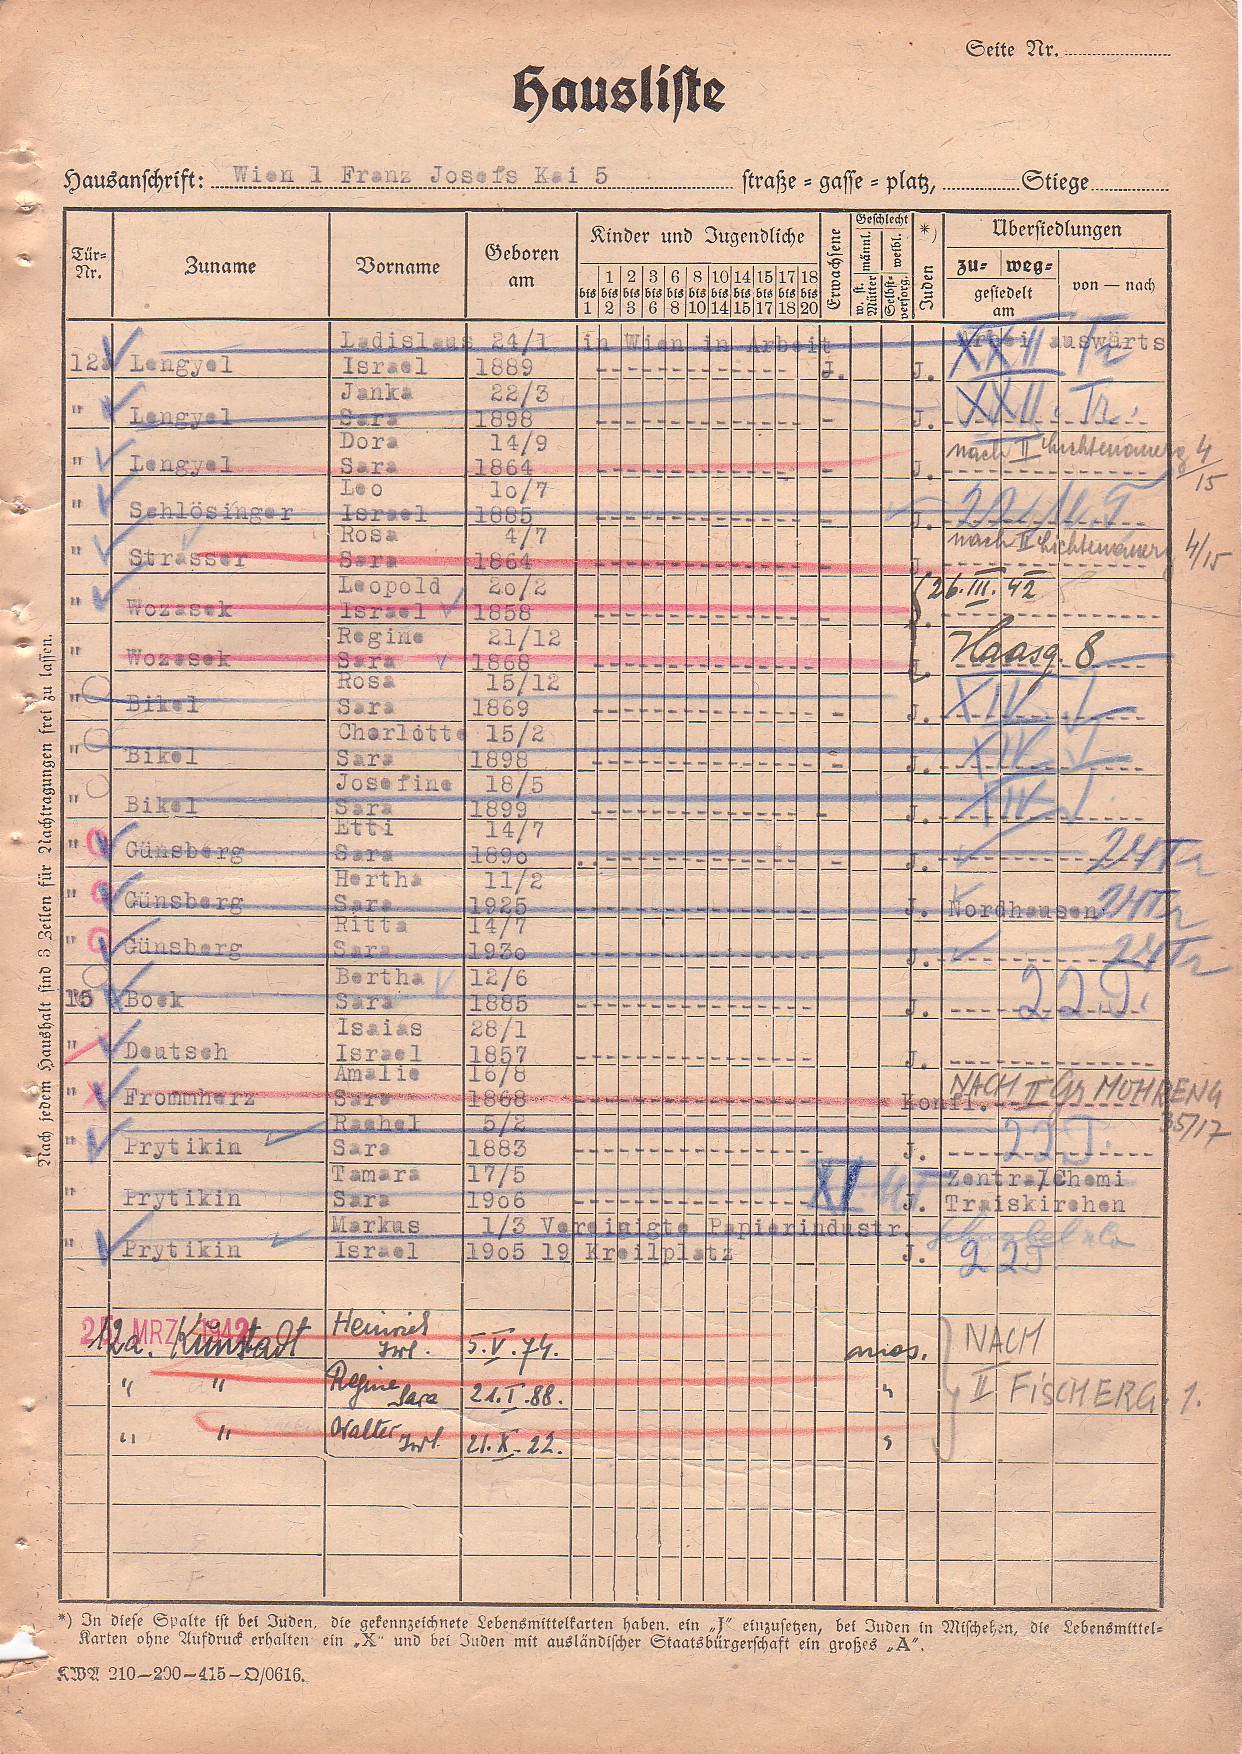 Seite Nr.
Hausliste
Hausanschrift: Wien 1 Franz Josefs Kai 5 straße = gasse = platz, Stiege
Tür-Nr. Zuname Vorname Geboren am Kinder und Jugendliche Erwachsene Geschlecht *) Juden Übersiedlungen
männl. weibl. w. st. Mütter Selbst-versorg. zu- weg- gesiedelt am von — nach
bis 1 1 bis 2 2 bis 3 3 bis 6 6 bis 8 8 bis 10 10 bis 14 14 bis 15 15 bis 17 17 bis 18 18 bis 20
Ladislaus 24/1 in Wien in Arbeit auswärts
12 Lengyel Israel 1889 J. J. XXII Tr
Janka 22/3
" Lengyel Sara 1898 - J. XXII. Tr.
Dora 14/9 nach II Lichtenauerg 4/15
" Lengyel Sara 1864 - J.
Leo 1o/7
" Schlösinger Israel 1885 - J. 22 T
Rosa 4/7 nach II Lichtenauerg 4/15
" Strasser Sara 1864 J.
Leopold 2o/2 26.III.42
" Wozasek Israel 1858
Regine 21/12
" Wozasek Sara 1868 J. Haasg. 8
Rosa 15/12
" Bikel Sara 1869 - J. XIV
Charlotte 15/2
" Bikel Sara 1898 - J. XIV
Josefine 18/5
" Bikel Sara 1899 - J. XIV
Etti 14/7
" Günsberg Sara 189o - J. 24 Tr
Hertha 11/2
" Günsberg Sara 1925 J. Nordhausen 24 Tr
Ritta 14/7
" Günsberg Sara 193o J. 24 Tr
Bertha 12/6
15 Bock Sara 1885 J. 22 T.
Isaias 28/1
" Deutsch Israel 1857 J.
Amalie 16/8 NACH II Gr MOHRENG
" Frommherz Sara 1868 Konfl. 35/17
Rachel 5/2
" Prytikin Sara 1883 J. 22 T.
Tamara 17/5 Zentra/Chemi
" Prytikin Sara 19o6 XI J. Traiskirchen
Markus 1/3 Vereinigte Papierindustr.
" Prytikin Israel 19o5 19 Kreilplatz J. 22 T
25. MRZ. 1942
12a. Kunstadt Heinrich Isrl. 5.V.74. mos. NACH
" " Regine Sara 21.I.88. " II FISCHERG. 1.
" " Walter Isrl. 21.X.22. "
Nach jedem Haushalt sind 3 Zeilen für Nachtragungen frei zu lassen.
*) In diese Spalte ist bei Juden, die gekennzeichnete Lebensmittelkarten haben, ein „J" einzusetzen, bei Juden in Mischehen, die Lebensmittel-
Karten ohne Aufdruck erhalten ein „X" und bei Juden mit ausländischer Staatsbürgerschaft ein großes „A".
KWA 210—200—415—O/0616.